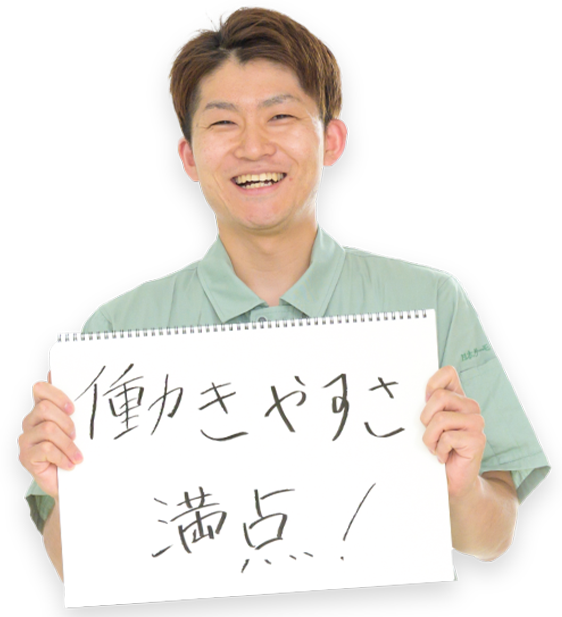 働きやすさ
満点！